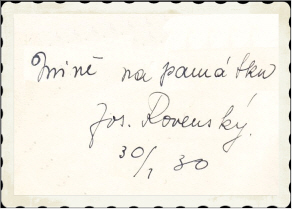 Mině na památku
Jos. Rovenský.
30/1 30